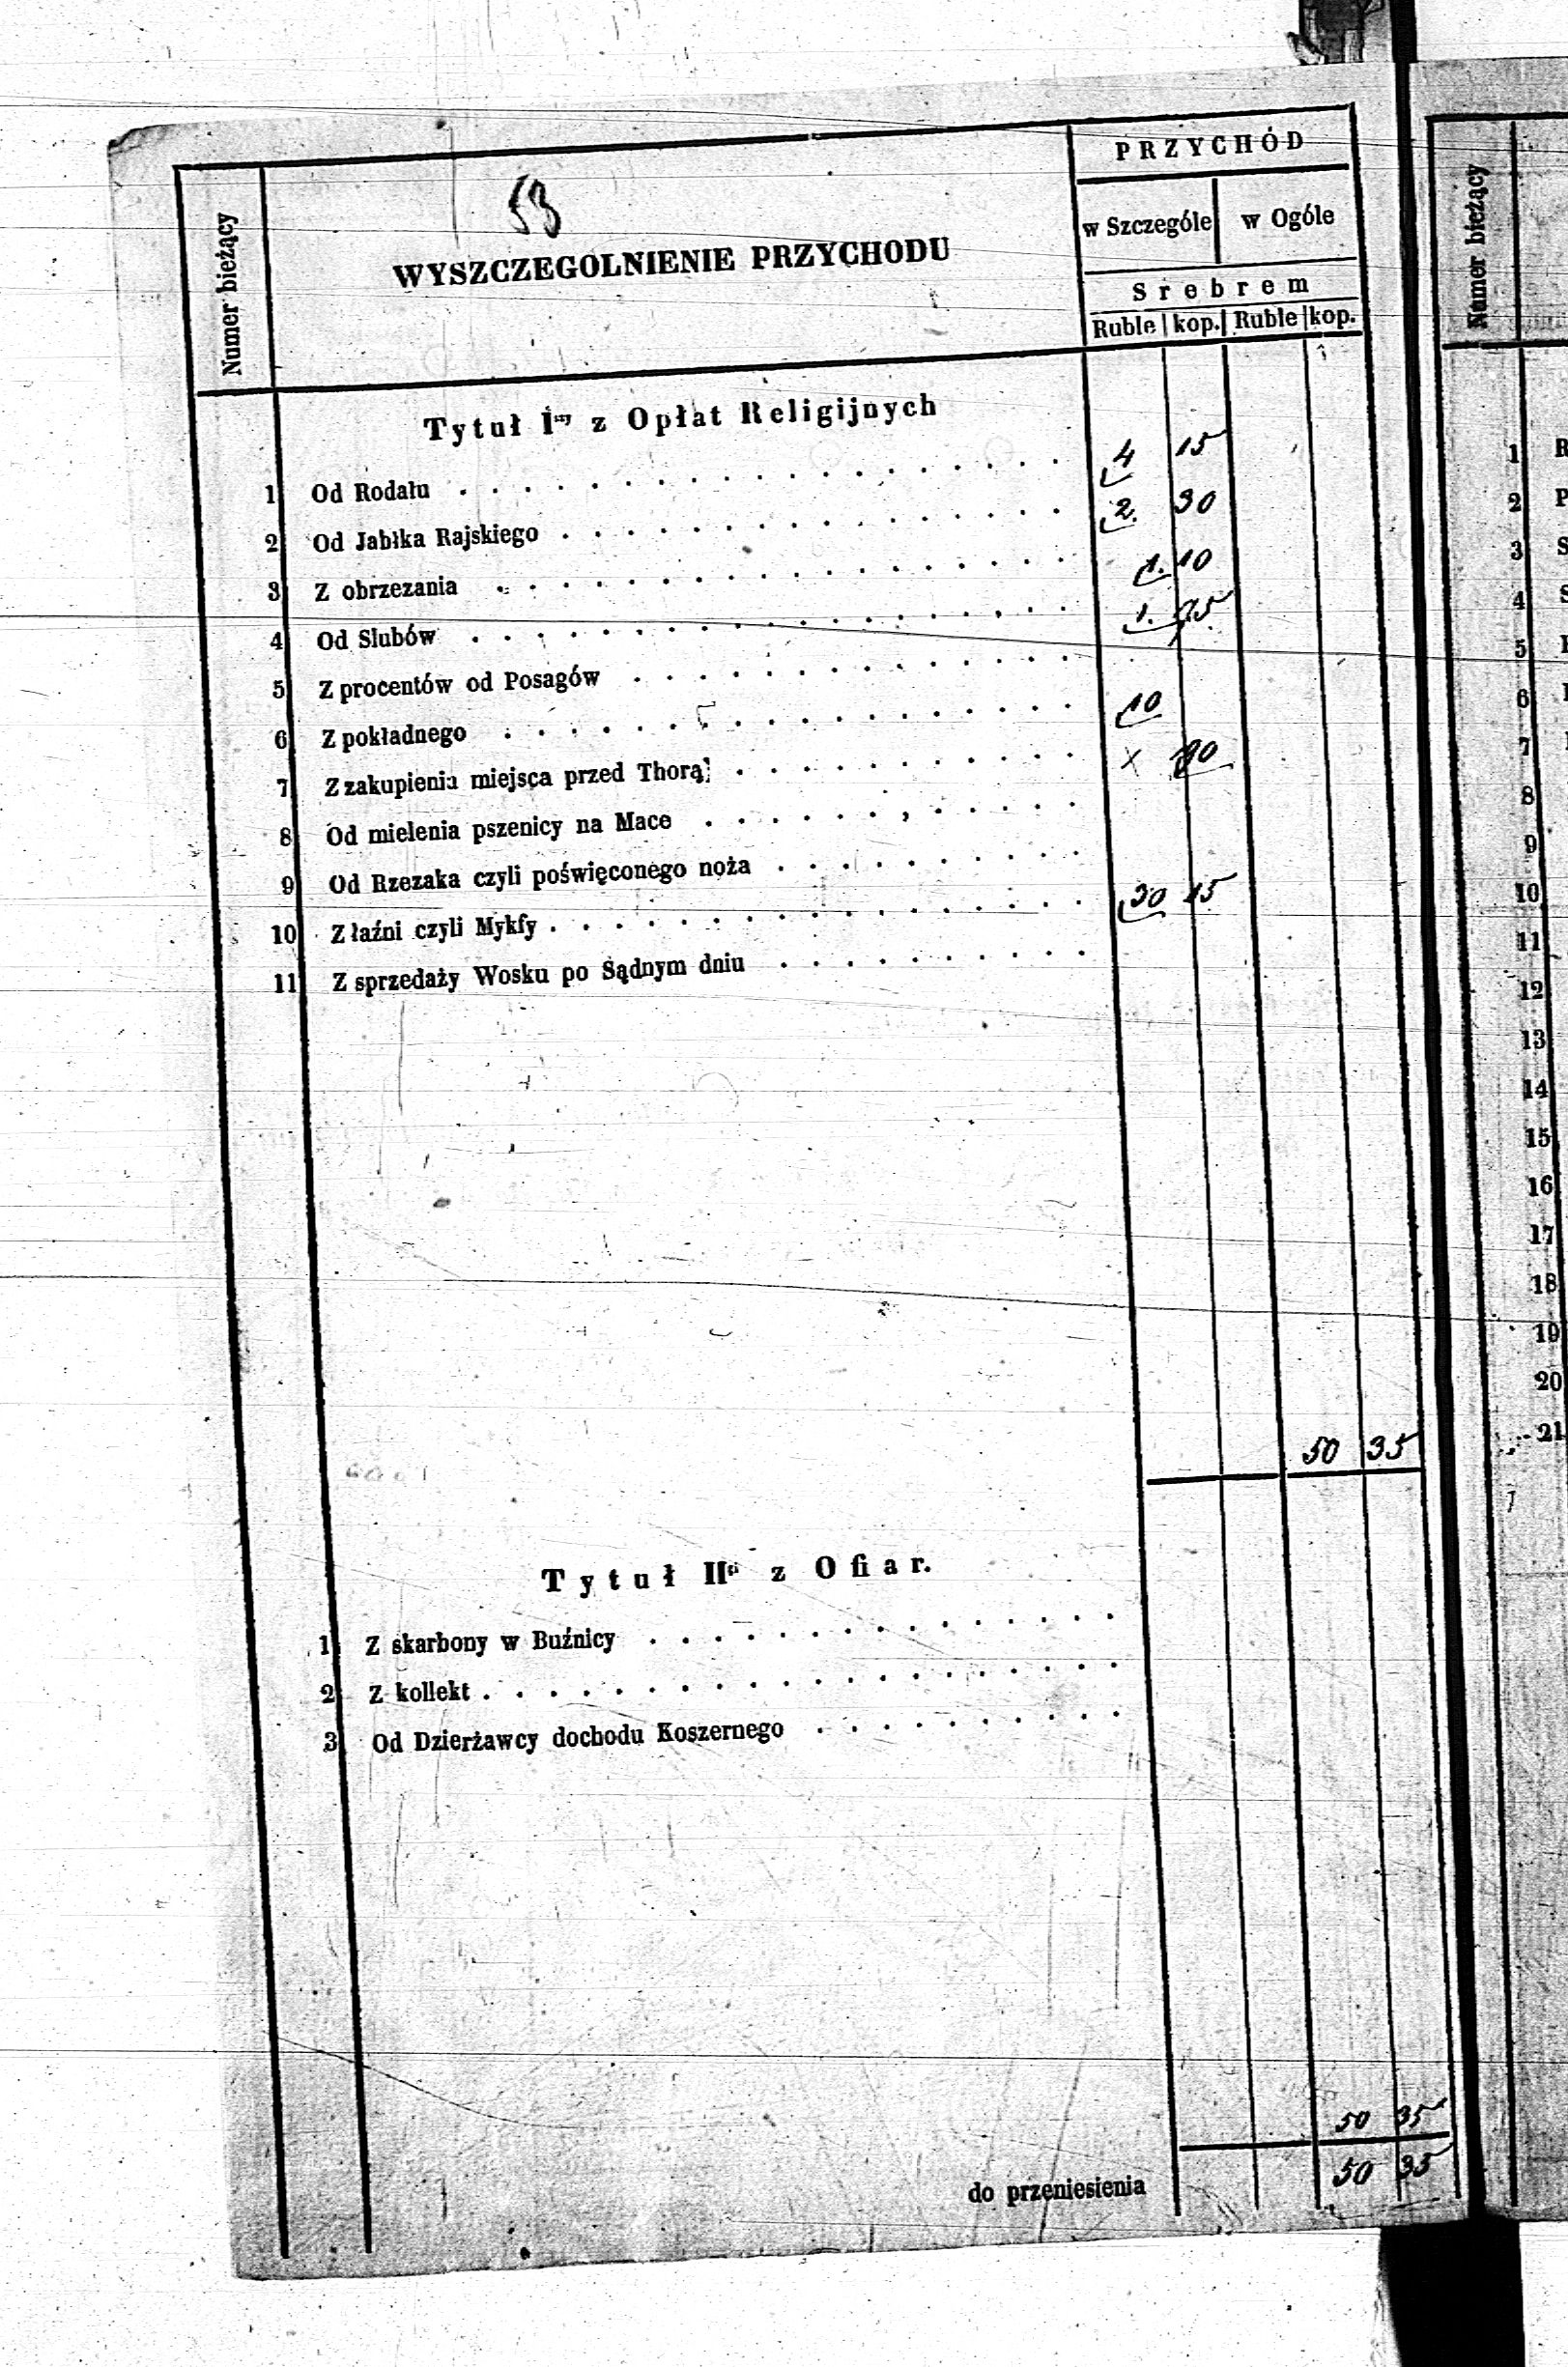 53
Numer bieżący
WYSZCZEGÓLNIENIE PRZYCHODU
PRZYCHÓD
w Szczególe w Ogóle
Srebrem
Ruble kop. Ruble kop.
Tytuł I z Opłat Religijnych
1 Od Rodału 4 15
2 Od Jabłka Rajskiego 2. 30
3 Z obrzezania 1. 10
4 Od Slubów 1.
5 Z procentów od Posagów
6 Z pokładnego 10
7 Z zakupienia miejsca przed Thorą
8 Od mielenia pszenicy na Mace
9 Od Rzezaka czyli poświęconego noża
10 Z łaźni czyli Mykfy 30 15
11 Z sprzedaży Wosku po Sądnym dniu
50 35
Tytuł II z Ofiar.
1 Z skarbony w Buźnicy
2 Z kollekt
3 Od Dzierżawcy dochodu Koszernego
50 35
do przeniesienia 50 35
Numer bieżący
1 R
2 P
3 S
4 S
5
6
7
8
9
10
11
12
13
14
15
16
17
18
19
20
21